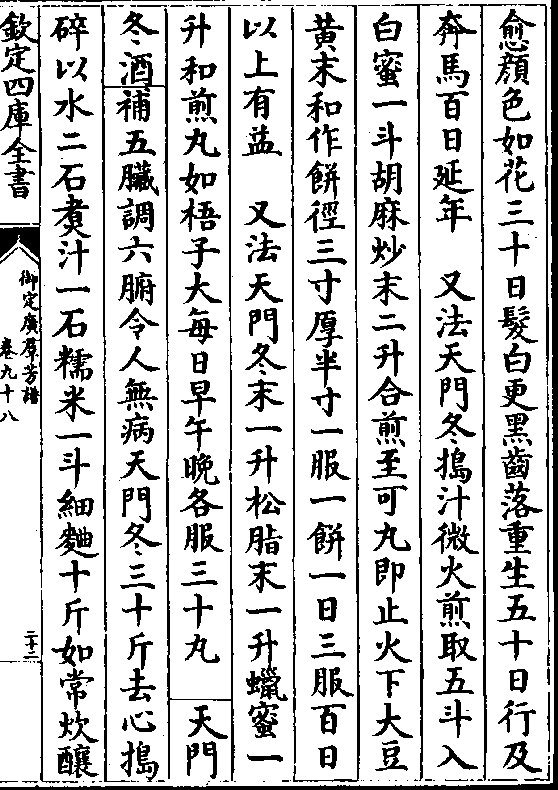 愈顔色如花三十日髮白更黑齒落重生五十日行及
奔馬百日延年　又法天門冬搗汁微火煎取五斗入
白蜜一斗胡麻炒末二升合煎至可丸即止火下大豆
黄末和作餅徑三寸厚半寸一服一餅一日三服百日
以上有益　又法天門冬末一升松脂末一升蠟蜜一
升和煎丸如梧子大每日早午晚各服三十丸　天門
冬酒補五臟調六腑令人無病天門冬三十斤去心搗
碎以水二石煑汁一石糯米一斗細麯十斤如常炊釀
欽定四庫全書
御定廣羣芳譜
卷九十八
二十三